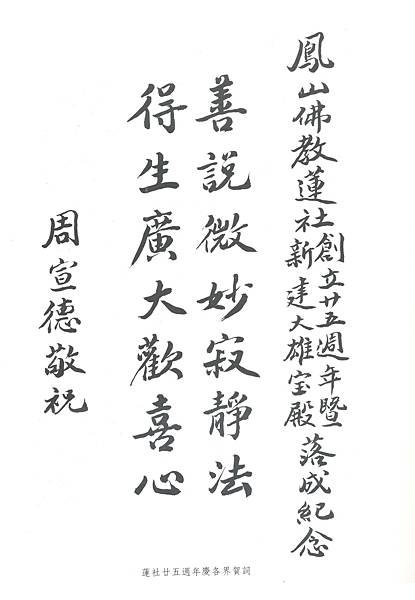 鳳山佛教蓮社創立廿五週年暨
新建大雄宝殿落成紀念
善說微妙寂靜法
得生廣大歡喜心
周宣德敬祝
蓮社廿五週年慶各界賀詞